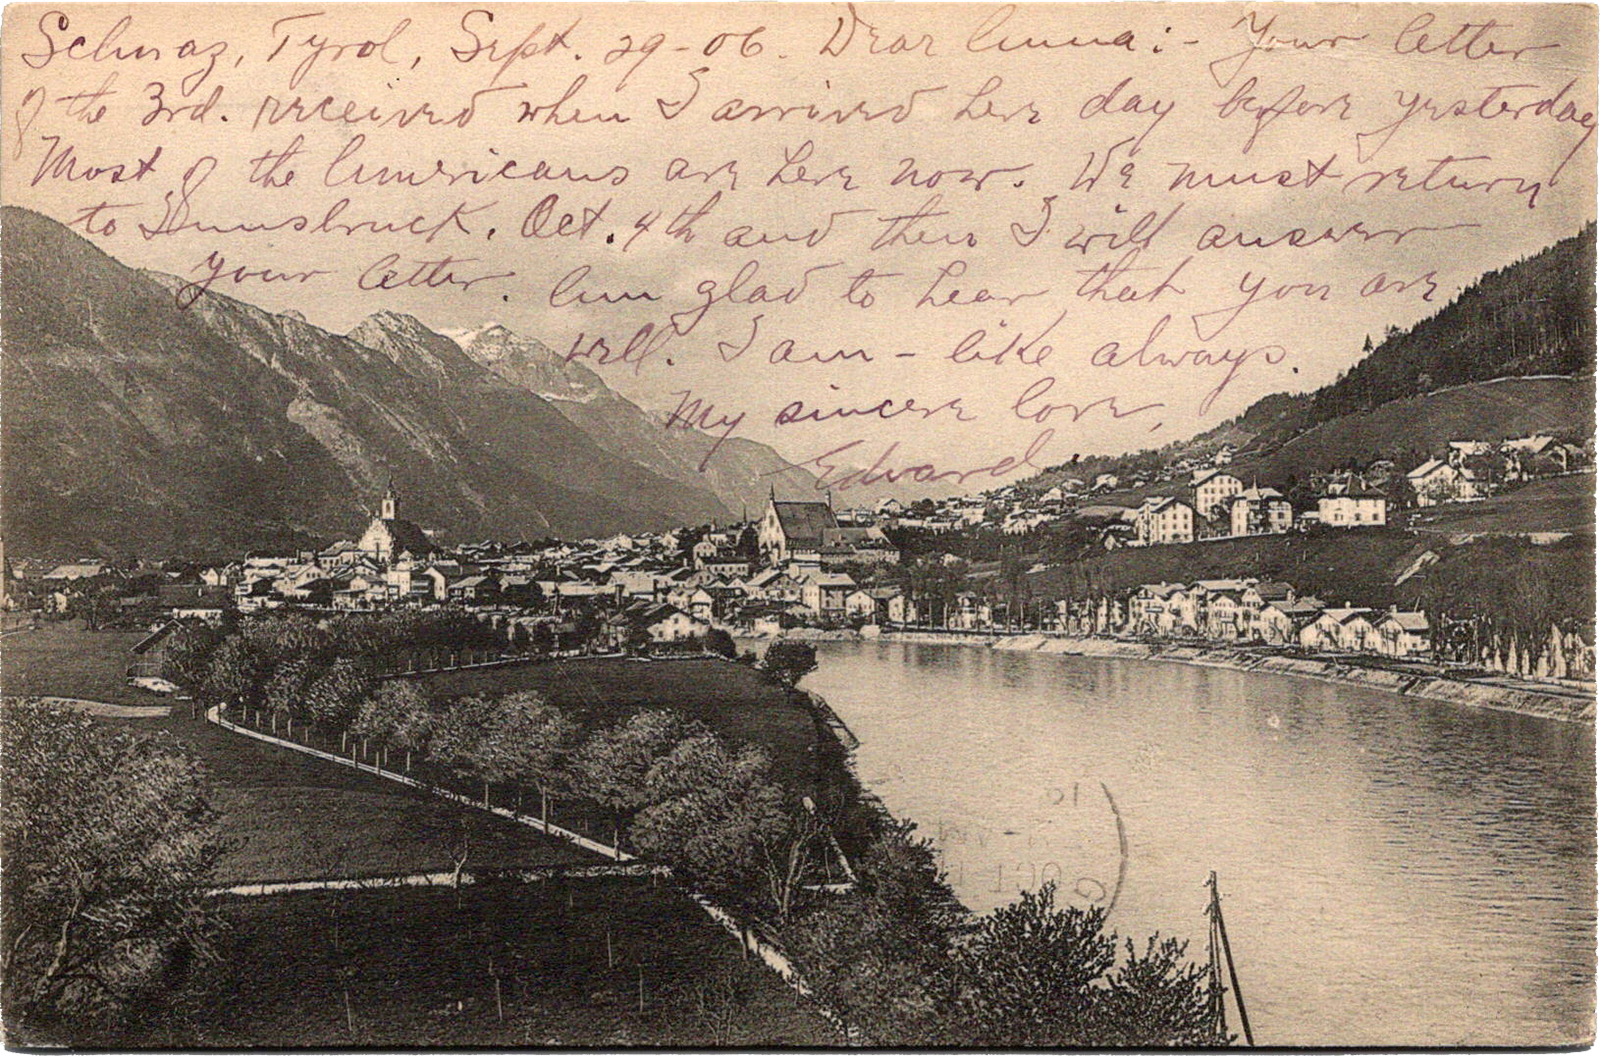 Schwaz, Tyrol, Sept. 29-06. Dear Anna:- Your letter
of the 3rd. received when I arrived here day before yesterday
Most of the Americans are here now. We must return
to Innsbruck. Oct. 4th and then I will answer
your letter. Am glad to hear that you are
well. I am - like always.
My sincere love,
Edward.
OCT